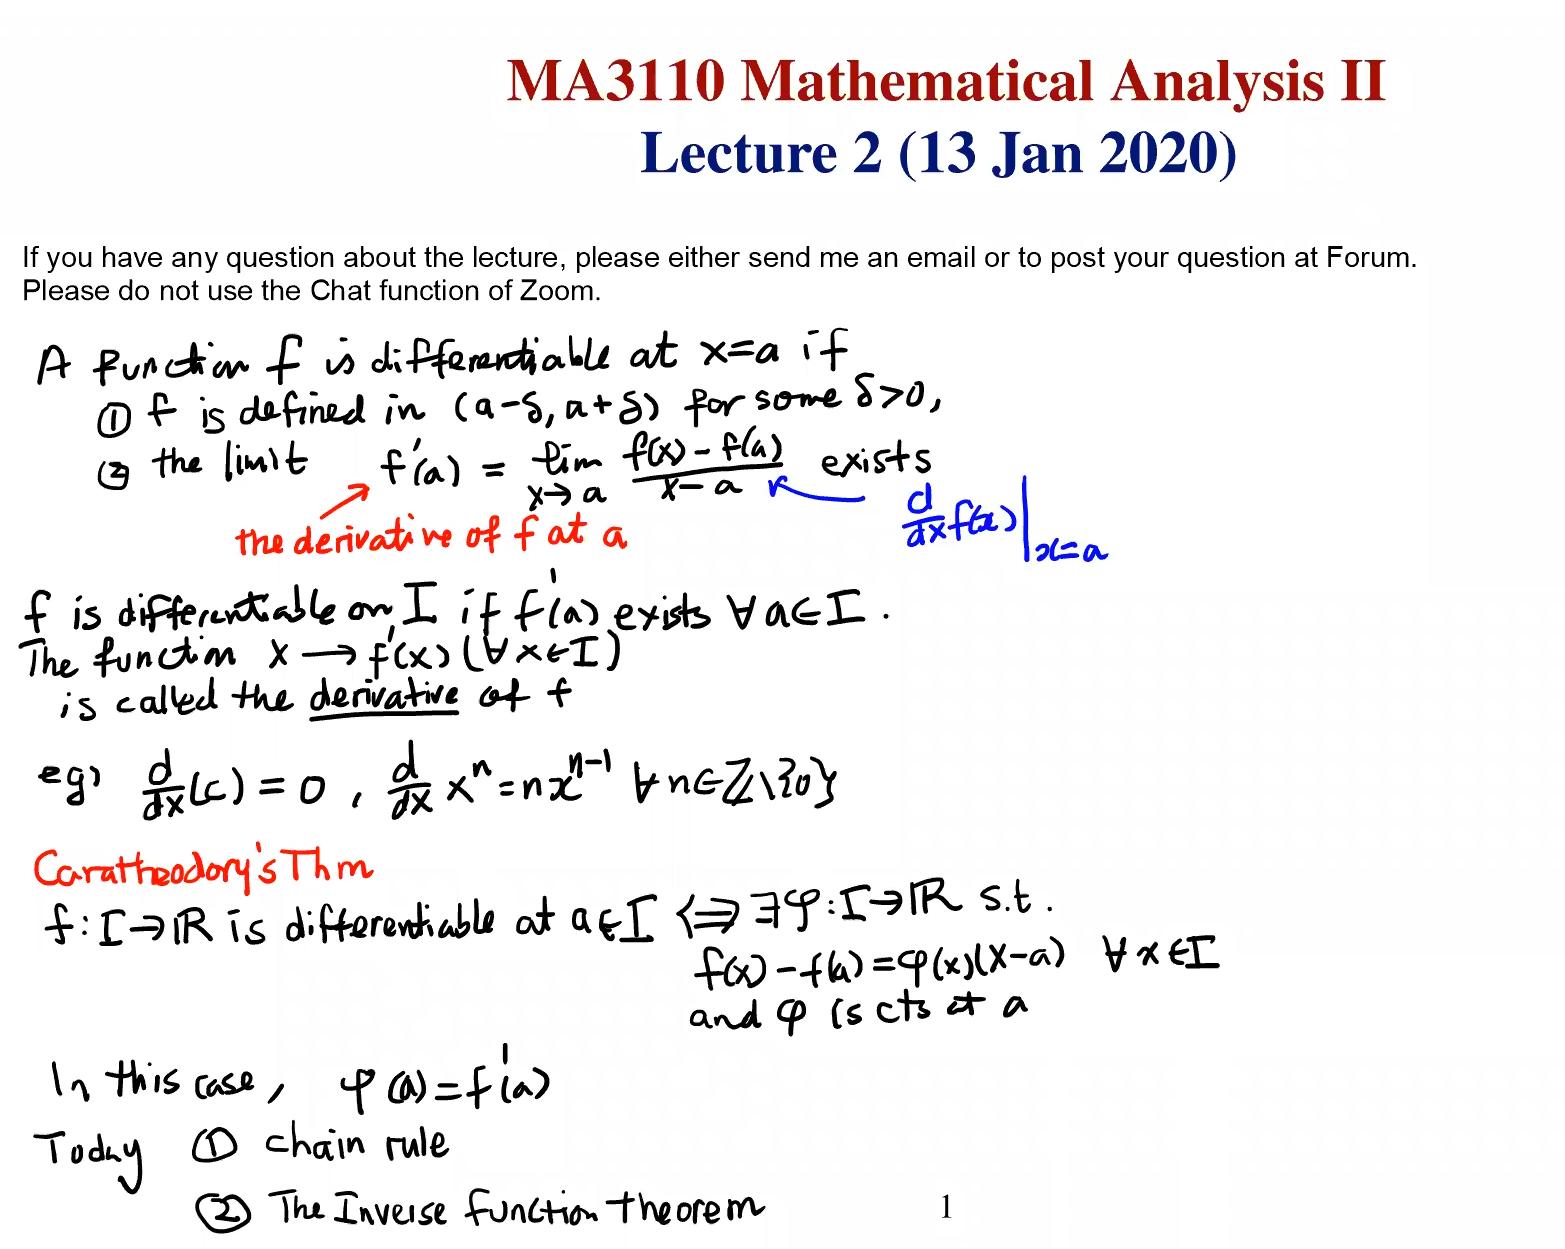 MA3110 Mathematical Analysis II
Lecture 2 (13 Jan 2020)
If you have any question about the lecture, please either send me an email or to post your question at Forum.
Please do not use the Chat function of Zoom.
A function f is differentiable at x=a if
① f is defined in (a-δ, a+δ) for some δ>0,
② the limit f'(a) = lim x→a (f(x) - f(a))/(x-a) exists
the derivative of f at a
d/dx f(x)|x=a
f is differentiable on I if f'(a) exists ∀a∈I.
The function x → f'(x) (∀x∈I)
is called the derivative of f
eg) d/dx(c) = 0, d/dx xⁿ = nxⁿ⁻¹ ∀n∈ℤ\{0}
Caratheodory's Thm
f: I→ℝ is differentiable at a∈I ⟺ ∃φ: I→ℝ s.t.
f(x) - f(a) = φ(x)(x-a) ∀x∈I
and φ is cts at a
In this case, φ(a) = f'(a)
Today ① chain rule
② The Inverse function theorem
1